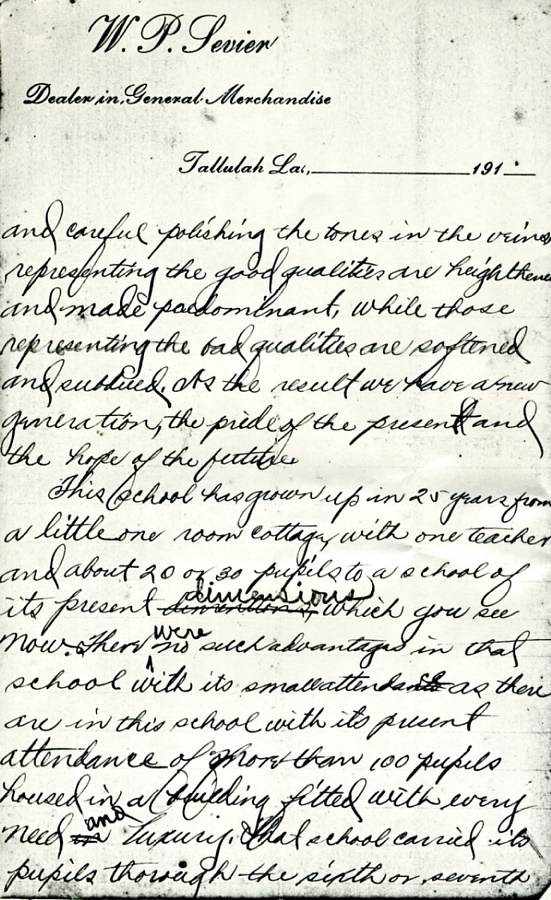 W. P. Sevier
Dealer in General Merchandise
Tallulah La., 191
and careful polishing the tones in the veins
representing the good qualities are heightene
and made predominant, while those
representing the bad qualities are softened
and subdued. As the result we have a new
generation, the pride of the present and
the hope of the future.
This school has grown up in 25 years from
a little one room cottage, with one teacher
and about 20 or 30 pupils to a school of
its present dimensions, which you see
now. There were no such advantages in that
school with its small attendance as there
are in this school with its present
attendance of more than 100 pupils
housed in a building fitted with every
need and luxury. That school carried its
pupils thorough the sixth or seventh